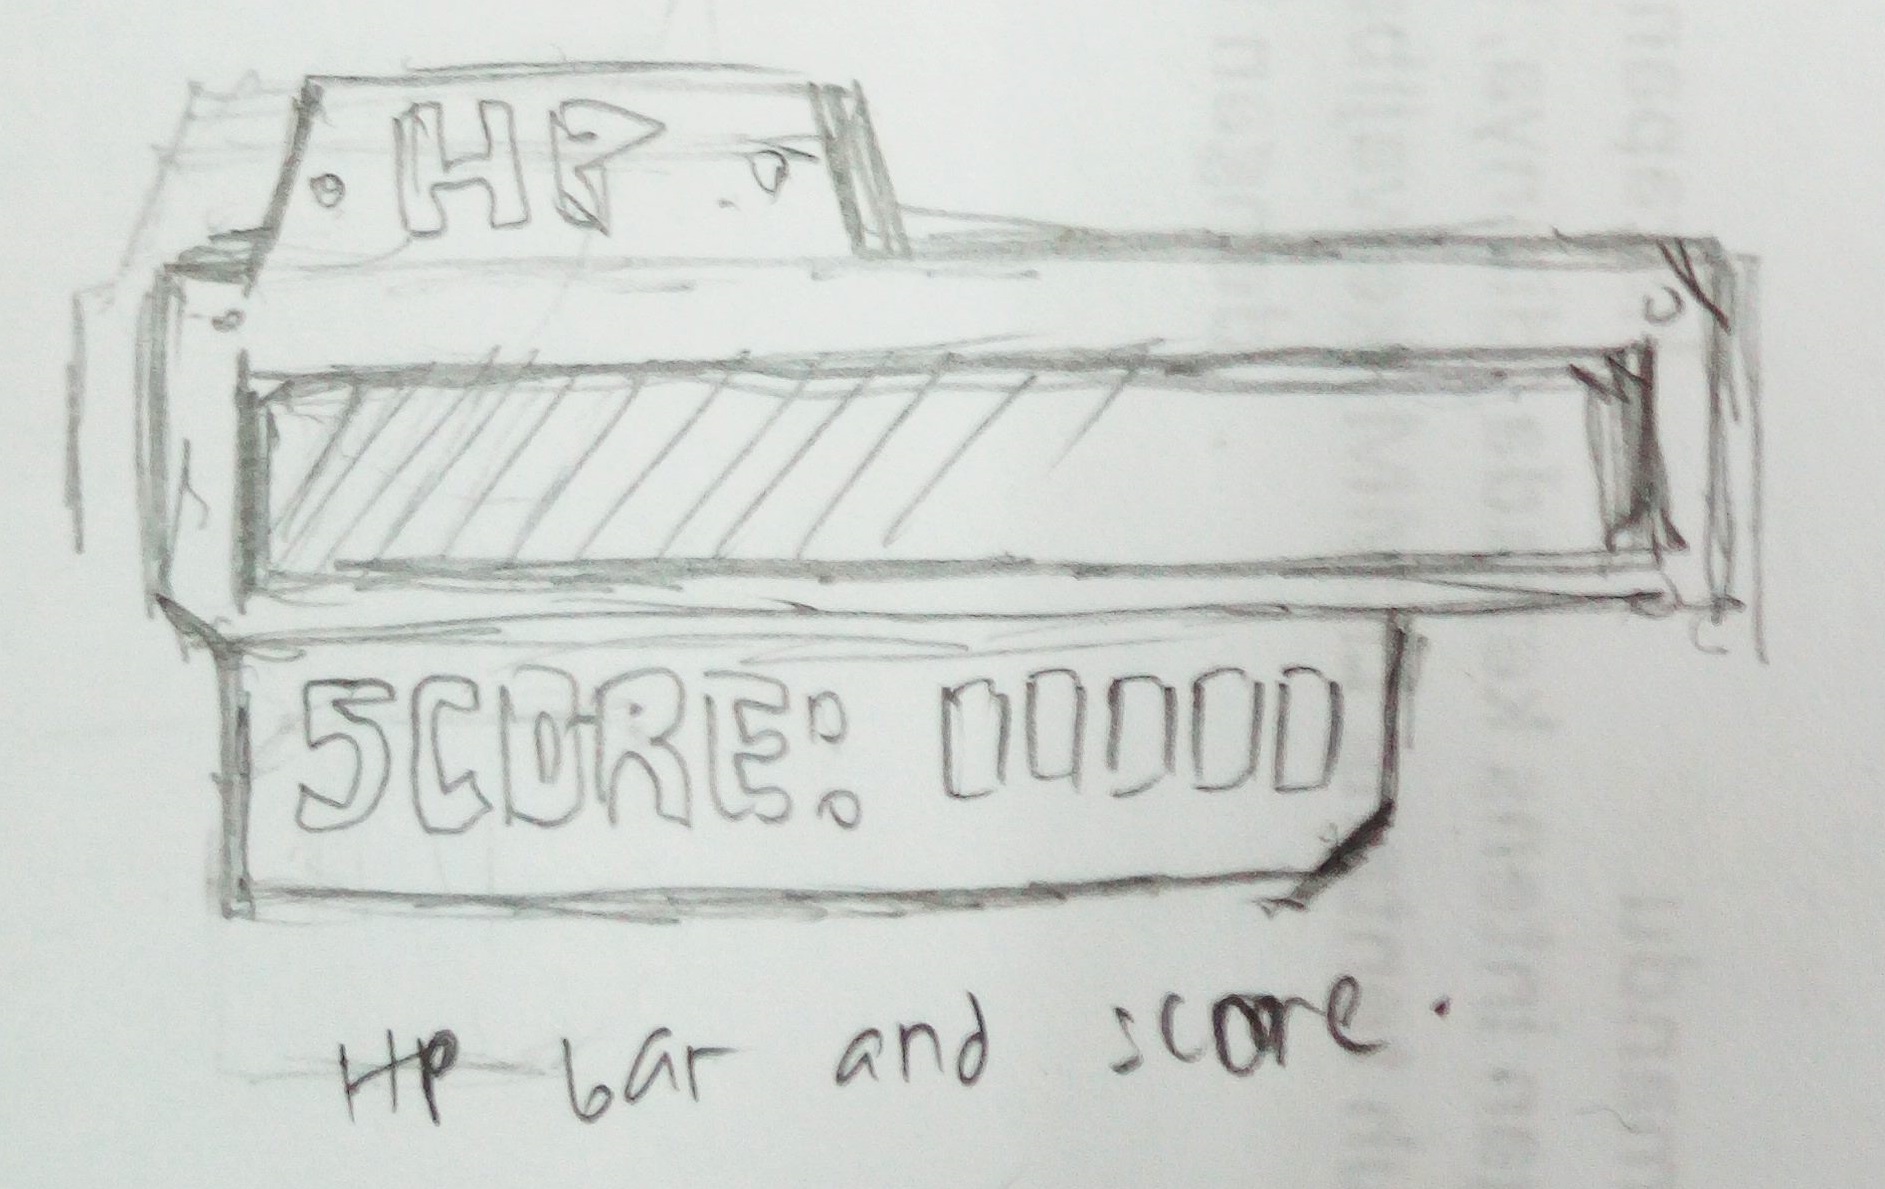 HP
SCORE: 00000
HP bar and score.